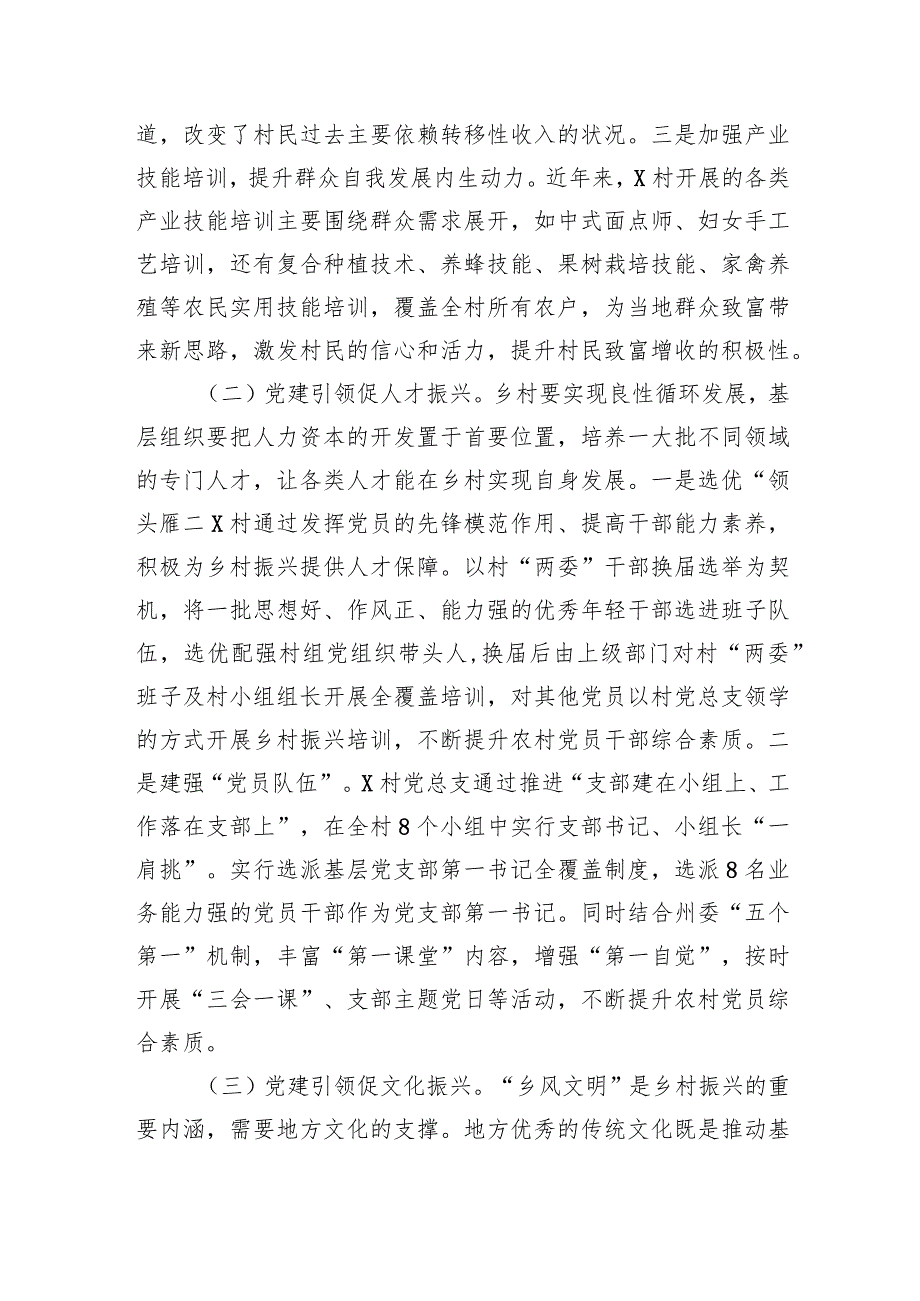 道，改变了村民过去主要依赖转移性收入的状况。三是加强产业
技能培训，提升群众自我发展内生动力。近年来，X村开展的各类
产业技能培训主要围绕群众需求展开，如中式面点师、妇女手工
艺培训，还有复合种植技术、养蜂技能、果树栽培技能、家禽养
殖等农民实用技能培训，覆盖全村所有农户，为当地群众致富带
来新思路，激发村民的信心和活力，提升村民致富增收的积极性。
（二）党建引领促人才振兴。乡村要实现良性循环发展，基
层组织要把人力资本的开发置于首要位置，培养一大批不同领域
的专门人才，让各类人才能在乡村实现自身发展。一是选优“领
头雁二X村通过发挥党员的先锋模范作用、提高干部能力素养，
积极为乡村振兴提供人才保障。以村“两委”干部换届选举为契
机，将一批思想好、作风正、能力强的优秀年轻干部选进班子队
伍，选优配强村组党组织带头人,换届后由上级部门对村“两委”
班子及村小组组长开展全覆盖培训，对其他党员以村党总支领学
的方式开展乡村振兴培训，不断提升农村党员干部综合素质。二
是建强“党员队伍”。X村党总支通过推进“支部建在小组上、工
作落在支部上”，在全村8个小组中实行支部书记、小组长“一
肩挑”。实行选派基层党支部第一书记全覆盖制度，选派8名业
务能力强的党员干部作为党支部第一书记。同时结合州委“五个
第一”机制，丰富“第一课堂”内容，增强“第一自觉”，按时
开展“三会一课”、支部主题党日等活动，不断提升农村党员综
合素质。
（三）党建引领促文化振兴。“乡风文明”是乡村振兴的重
要内涵，需要地方文化的支撑。地方优秀的传统文化既是推动基